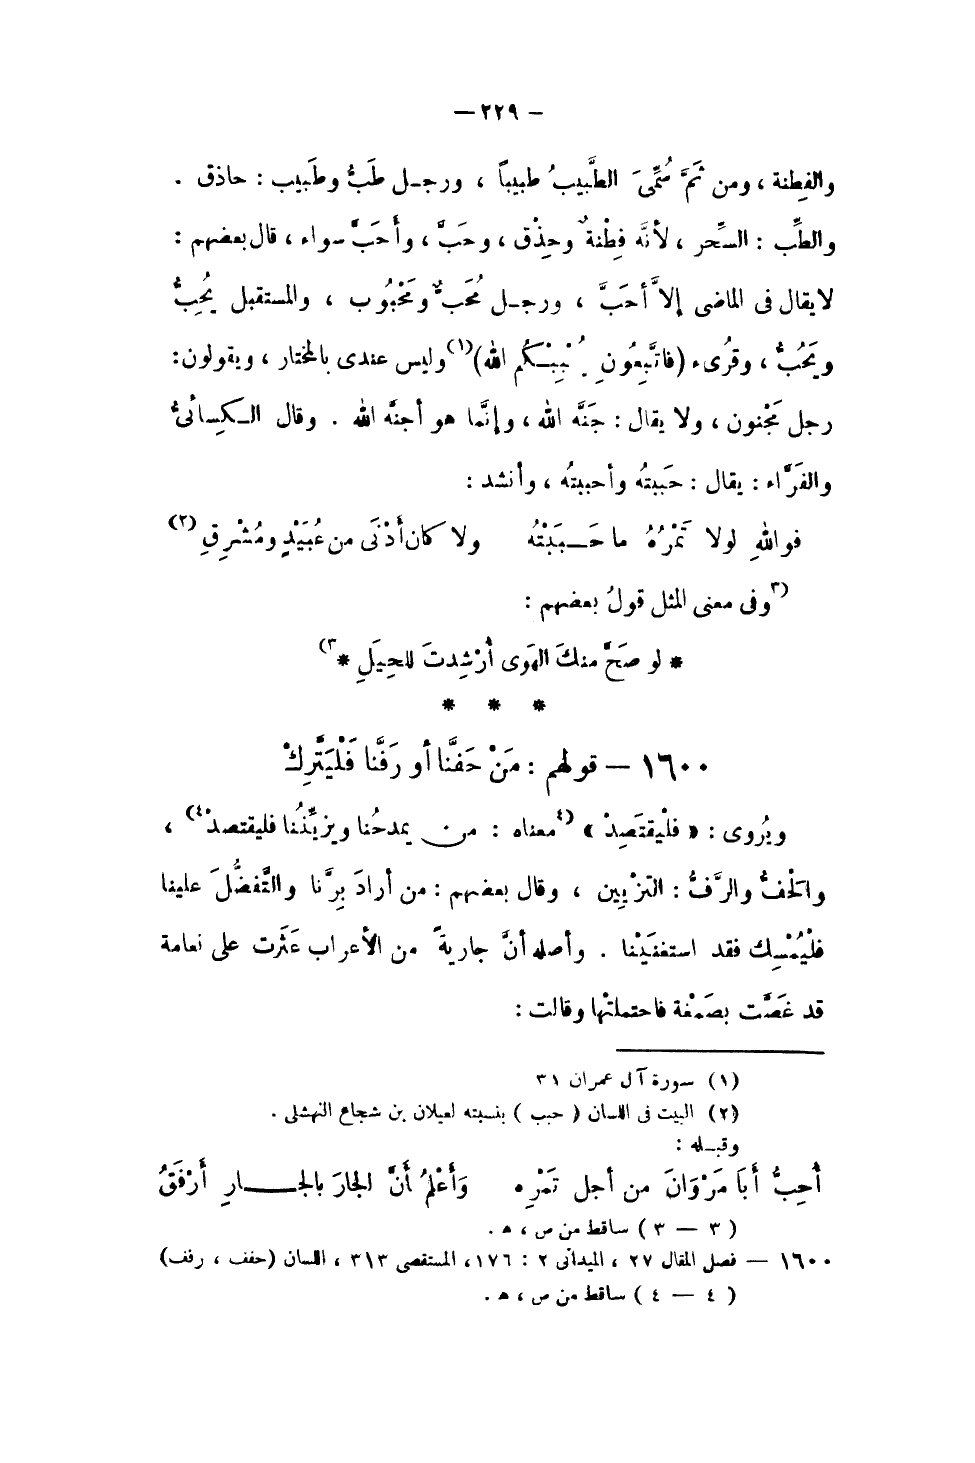 — ٢٢٩ —
والفِطنة ، ومن ثَمَّ سُمِّىَ الطَّبيبُ طبيباً ، ورجـل طَبٌّ وطَبيب : حاذق .
والطِّب : السِّحر ، لأنَّه فِطْنةٌ وحِذْق ، وحَبَّ ، وأَحَبَّ سواء ، قال بعضهم :
لا يقال فى الماضى إلاَّ أحَبَّ ، ورجـل مُحَبٌّ ومَحْبُوب ، والمستقبل يُحِبُّ
ويَحُبُّ ، وقرُىء (فاتَّبِعُونِى يُحْبِبْـكُم الله)(١) وليس عندى بالمختار ، ويقولون:
رجل مَجْنون ، ولا يقال : جَنَّه الله ، وإنَّما هو أجنَّه الله . وقال الـكِسائىُّ
والفَرَّاء : يقال : حَبيتُه وأحببتُه ، وأنشد :
فواللهِ لولا تَمْرُهُ ما حَـــبَبْتُه ولا كان أَدْنَى من عُبَيْدٍ ومُشْرِقِ (٢)
(٣ وفى معنى المثل قولُ بعضهم :
* لو صَحَّ منكَ الهَوى أُرْشِدتَ للحِيَلِ * ٣)
* * *
١٦٠٠ — قولهم : مَنْ حَفَّنَا أو رَفَّنَا فَلْيَتَّرِكْ
ويُروى : « فلْيقتَصِدْ » (٤ معناه : من يمدحُنا ويزيِّنُنا فليقتصدْ ٤) ،
والحَفُّ والرَّفُّ : التزْيِين ، وقال بعضهم : من أرادَ بِرَّنا والتَّفضُّلَ علينا
فلْيُمْسِك فقد استغنَيْنا . وأصله أنَّ جاريةً من الأعراب عَثَرت على نعامة
قد غَصَّت بصَمْغة فاحتملتْها وقالت :
(١) سورة آل عمران ٣١
(٢) البيت فى اللسان ( حبب ) بنسبته لعيلان بن شجاع النهشلى .
وقبـله :
أُحِبُّ أَبَا مَرْوَانَ من أجل تَمْرِه وَأَعْلَمُ أَنَّ الجارَ بالجَـــــارِ أَرْفَقُ
( ٣ — ٣ ) ساقط من ص ، هـ .
١٦٠٠ — فصل المقال ٢٧ ، الميدانى ٢ : ١٧٦، المستقصى ٣١٣ ، اللسان (حفف ، رفف)
( ٤ — ٤ ) ساقط من ص ، هـ .